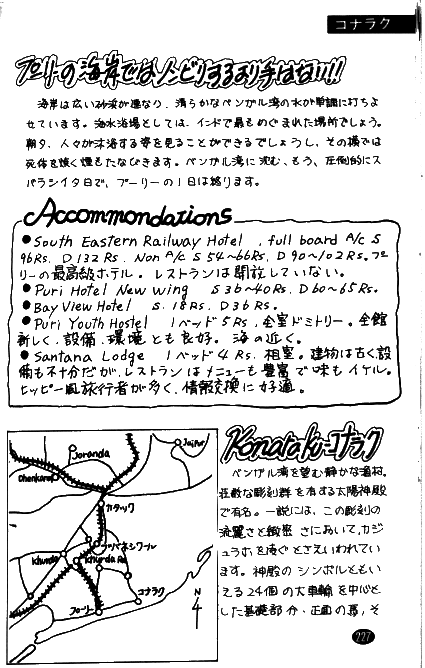 コナラク
プーリーの海岸ではノンビリするより手はない!!
海岸は広い砂浜が連なり、清らかなベンガル湾の水が単調に打ちよ
せています。海水浴場としては、インドで最もめぐまれた場所でしょう。
朝夕、人々が沐浴する姿を見ることができるでしょうし、その横では
死体を焼く煙もたなびきます。ベンガル湾に沈む、もう、圧倒的にス
バラシイ夕日で、プーリーの1日は終ります。
Accommondations
●South Eastern Railway Hotel , full board A/c S
96Rs. D 132 Rs. Non A/c S 54〜66Rs, D 90〜102Rs.プー
リーの最高級ホテル。レストランは開放していない。
●Puri Hotel New wing S 36〜40Rs. D 60〜65Rs.
●Bay View Hotel S. 18Rs. D 36Rs.
●Puri Youth Hostel 1ベッド5Rs,全室ドミトリー。全館
新しく、設備、環境とも良好。海の近く。
●Santana Lodge 1ベッド4Rs. 相室。建物は古く設
備も不十分だが、レストランはメニューも豊富で味もイケル。
ヒッピー風旅行者が多く、情報交換に好適。
Joronda
Jaipur
Dhenkanal
カタック
ブバネシワール
Khurda
Khurda Rd
コナラク
プーリー
N
4
Konaraku-コナラク
ベンガル湾を望む静かな漁村。
荘厳な彫刻群を有する太陽神殿
で有名。一説には、この彫刻の
流麗さと緻密さにおいて、カジ
ュラホを凌ぐとさえいわれてい
ます。神殿のシンボルともい
える24個の大車輪を中心と
した基礎部分、正面の馬、そ
227